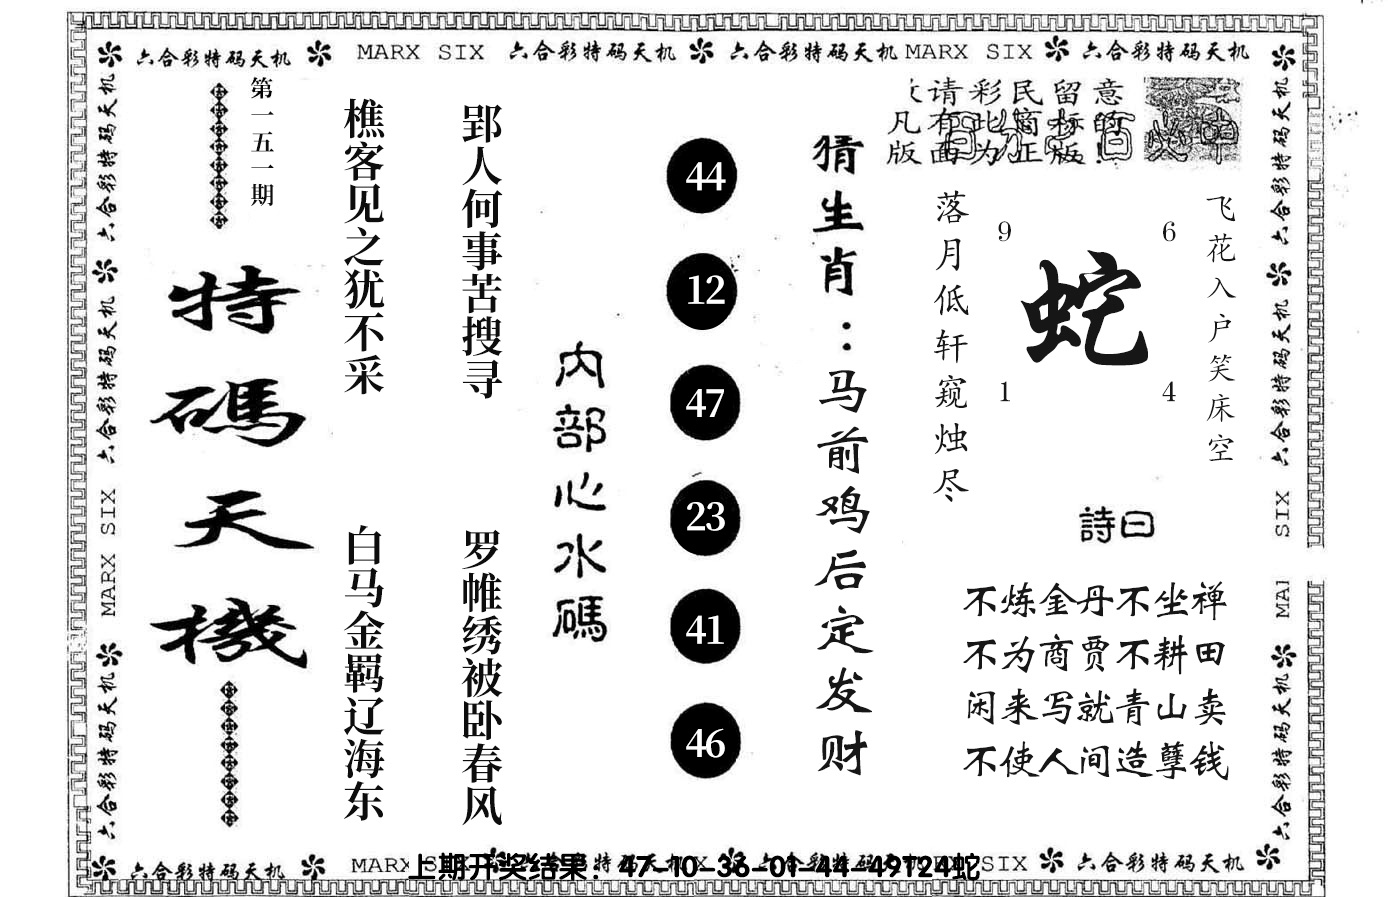 六合彩特码天机 MARX SIX 六合彩特码天机 六合彩特码天机 MARX SIX 六合彩特码天机
六合彩特码天机
六合彩特码天机
MARX SIX
六合彩特码天机
第一五一期
特碼天機
樵客见之犹不采
白马金羁辽海东
郢人何事苦搜寻
罗帷绣被卧春风
内部心水碼
44
12
47
23
41
46
猜生肖：马前鸡后定发财
请彩民留意
凡有此商标的
版面为正版！
落月低轩窥烛尽
9
6
蛇
1
4
飞花入户笑床空
詩曰
不炼金丹不坐禅
不为商贾不耕田
闲来写就青山卖
不使人间造孽钱
六合彩特码天机
六合彩特码天机
SIX
MA
六合彩特码天机
六合彩特码天机 MARX
上期开奖结果：47-10-36-01-44-49T24蛇
SIX 六合彩特码天机